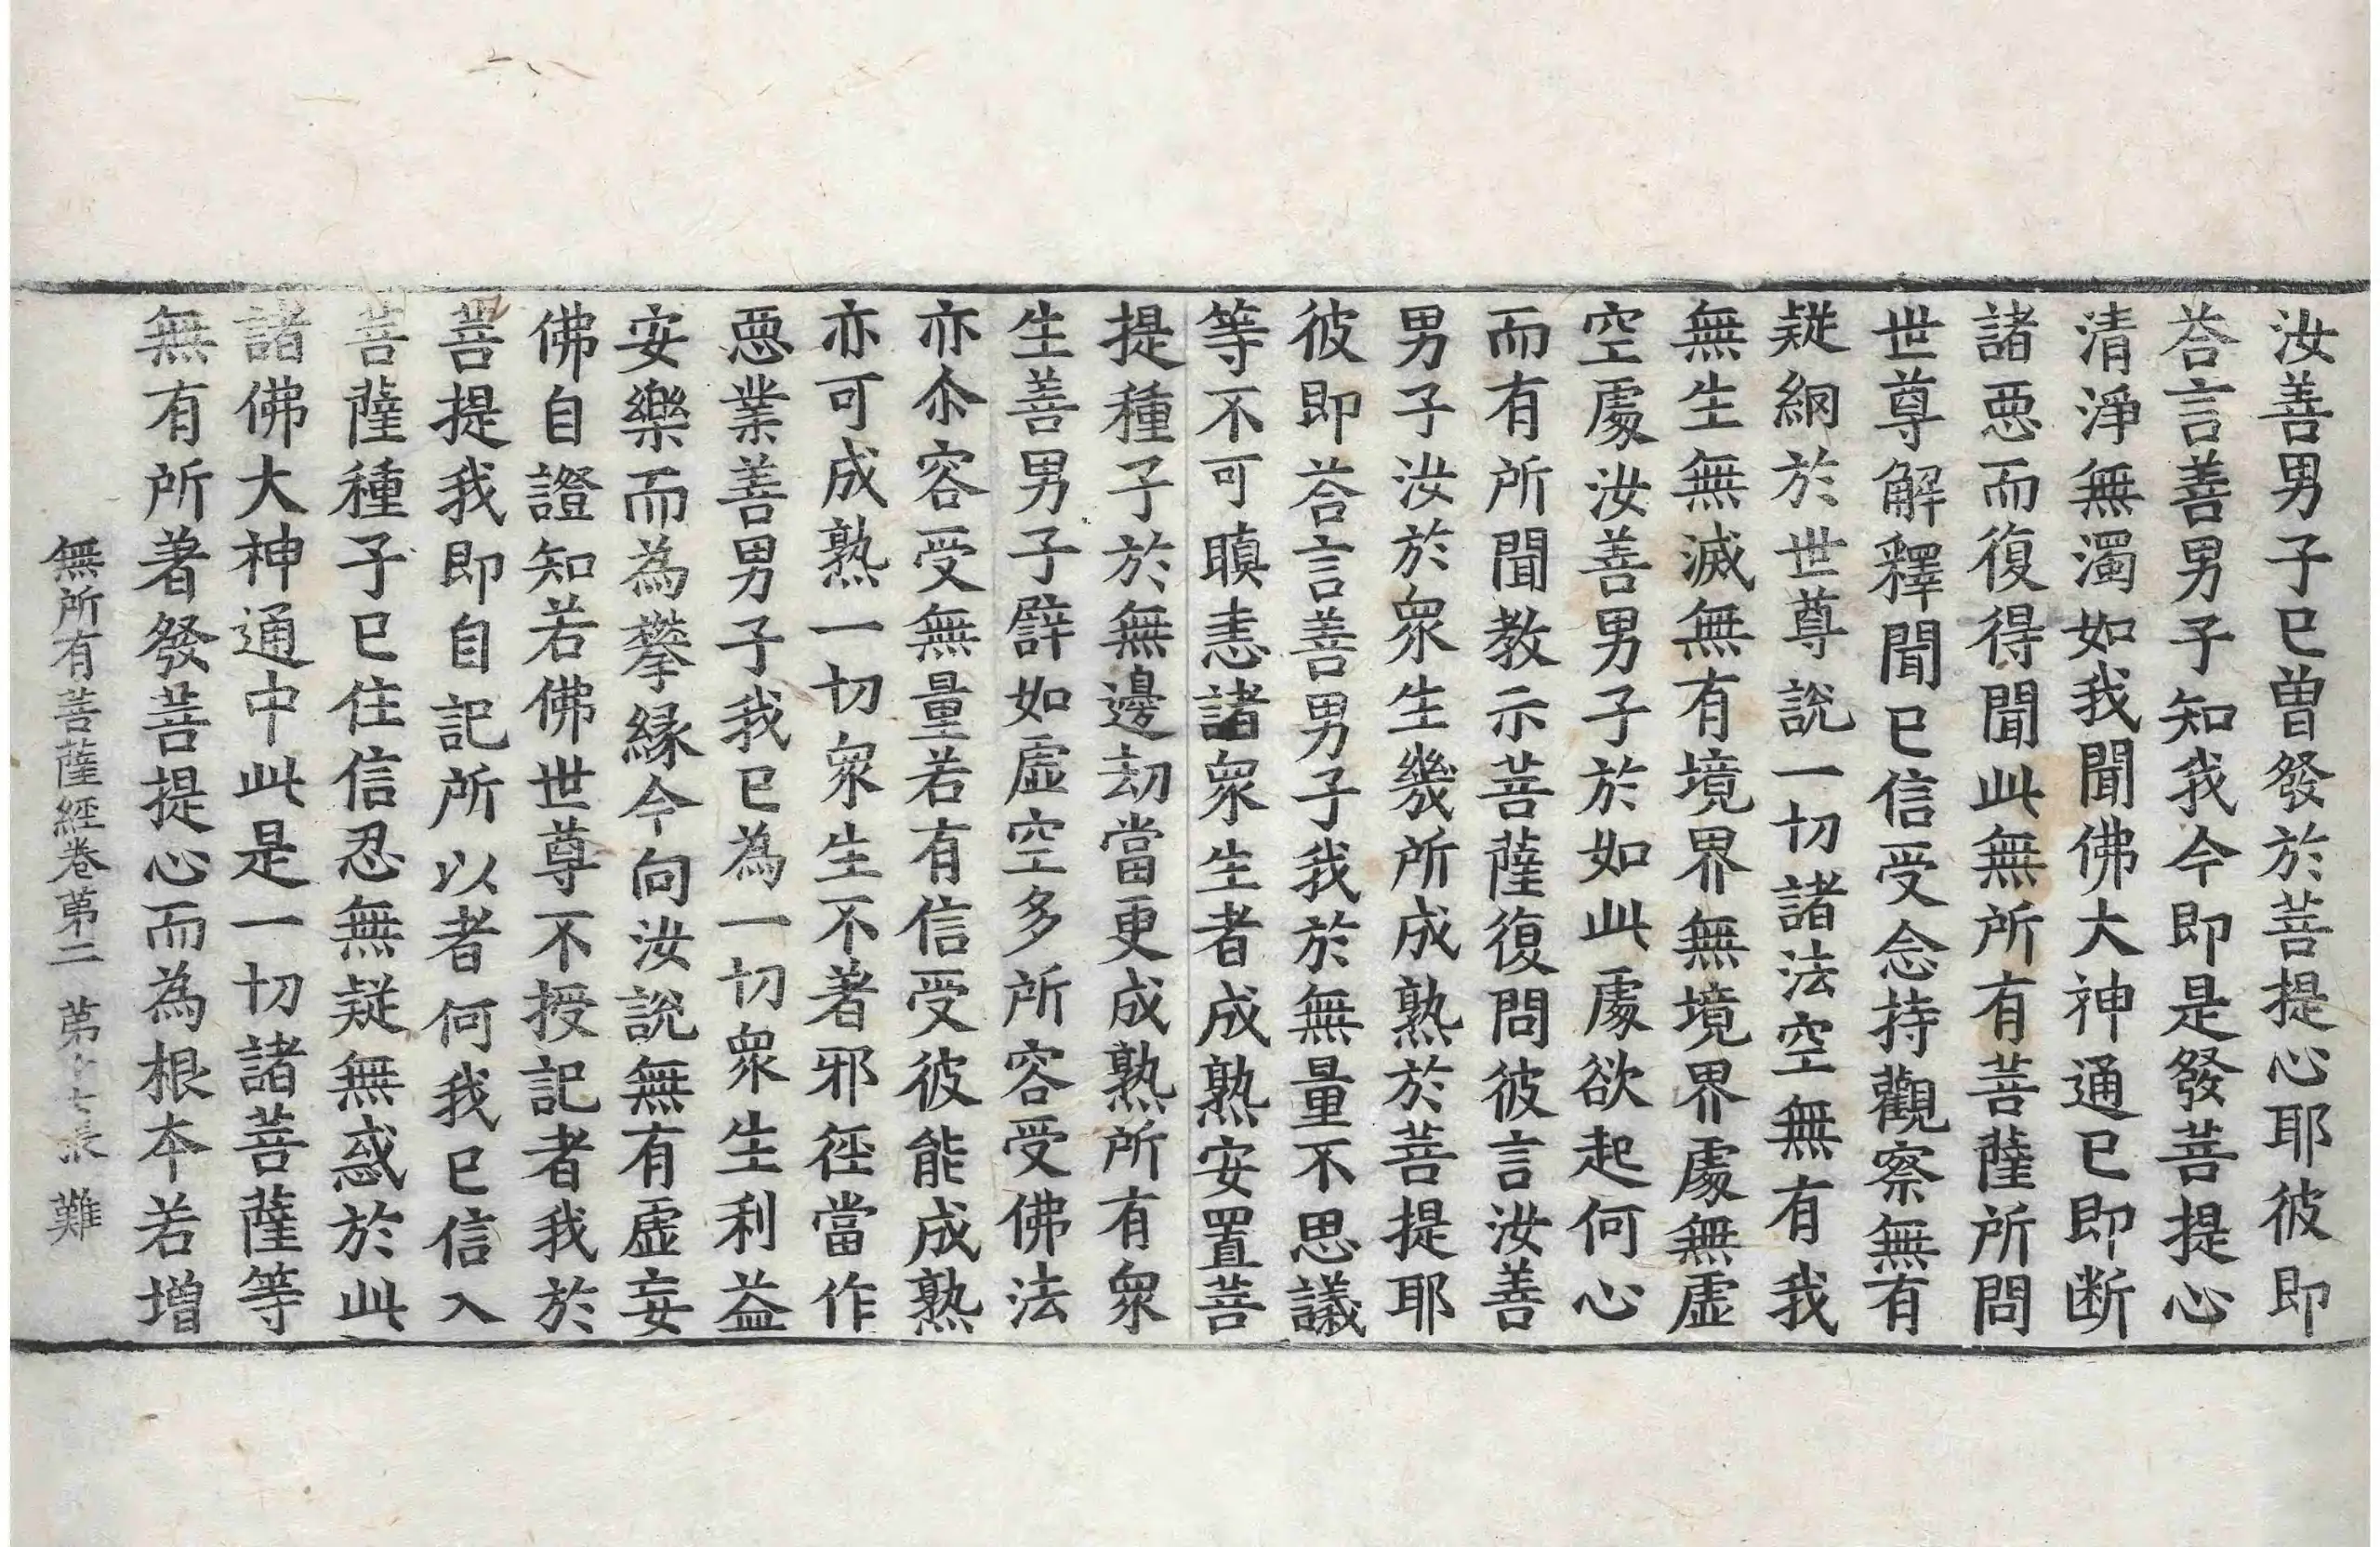 汝善男子已曾發於菩提心耶彼即
荅言善男子知我今即是發菩提心
清淨無濁如我聞佛大神通已即断
諸惡而復得聞此無所有菩薩所問
世尊解釋聞已信受念持觀察無有
疑網於世尊說一切諸法空無有我
無生無滅無有境界無境界處無虛
空處汝善男子於如此處欲起何心
而有所聞教示菩薩復問彼言汝善
男子汝於衆生幾所成熟於菩提耶
彼即荅言善男子我於無量不思議
等不可瞋恚諸衆生者成熟安置菩
提種子於無邊劫當更成熟所有衆
生善男子譬如虛空多所容受佛法
亦尒容受無量若有信受彼能成熟
亦可成熟一切衆生不著邪徑當作
惡業善男子我已為一切衆生利益
安樂而為攀緣今向汝說無有虛妄
佛自證知若佛世尊不授記者我於
菩提我即自記所以者何我已信入
菩薩種子已住信忍無疑無惑於此
諸佛大神通中此是一切諸菩薩等
無有所著發菩提心而為根本若增
無所有菩薩經卷苐二 苐十七張 難